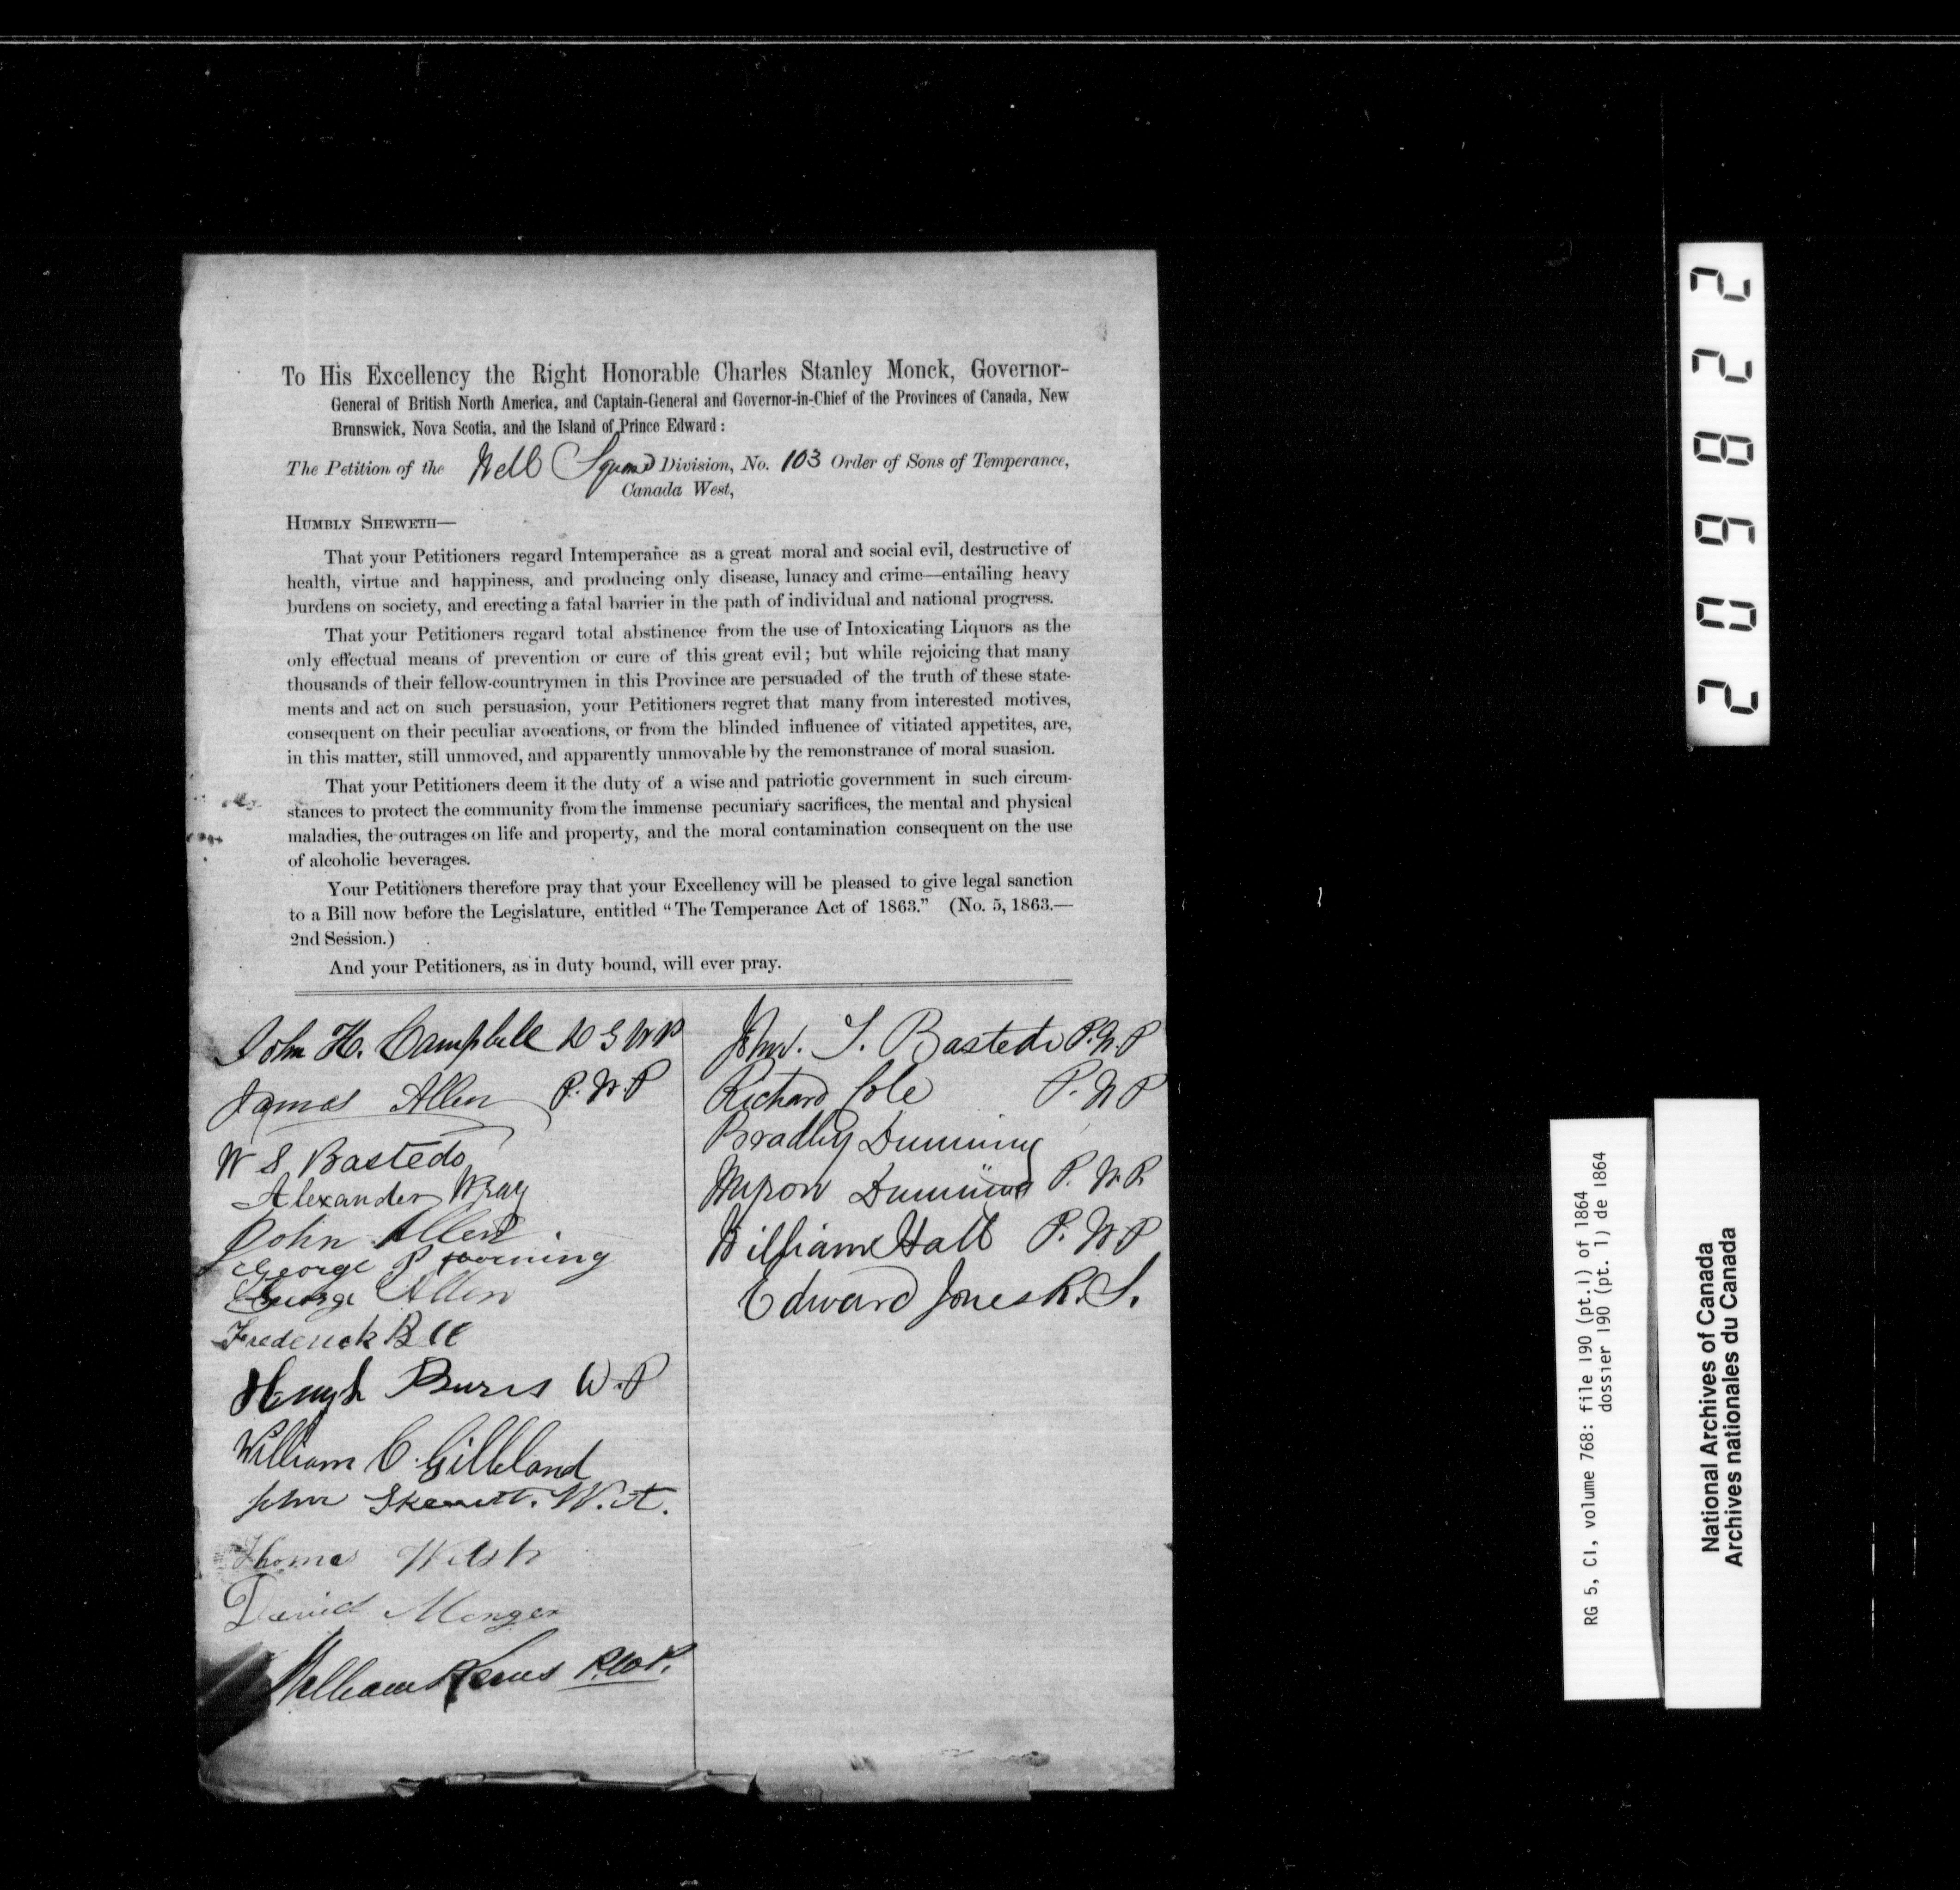 To His Excellency the Right Honorable Charles Stanley Monck, Governor-
General of British North America, and Captain-General and Governor-in-Chief of the Provinces of Canada, New
Brunswick, Nova Scotia, and the Island of Prince Edward:
The Petition of the Well Square Division, No. 103 Order of Sons of Temperance,
Canada West,
HUMBLY SHEWETH—
That your Petitioners regard Intemperance as a great moral and social evil, destructive of
health, virtue and happiness, and producing only disease, lunacy and crime—entailing heavy
burdens on society, and erecting a fatal barrier in the path of individual and national progress.
That your Petitioners regard total abstinence from the use of Intoxicating Liquors as the
only effectual means of prevention or cure of this great evil; but while rejoicing that many
thousands of their fellow-countrymen in this Province are persuaded of the truth of these state-
ments and act on such persuasion, your Petitioners regret that many from interested motives,
consequent on their peculiar avocations, or from the blinded influence of vitiated appetites, are,
in this matter, still unmoved, and apparently unmovable by the remonstrance of moral suasion.
That your Petitioners deem it the duty of a wise and patriotic government in such circum-
stances to protect the community from the immense pecuniary sacrifices, the mental and physical
maladies, the outrages on life and property, and the moral contamination consequent on the use
of alcoholic beverages.
Your Petitioners therefore pray that your Excellency will be pleased to give legal sanction
to a Bill now before the Legislature, entitled "The Temperance Act of 1863." (No. 5, 1863.—
2nd Session.)
And your Petitioners, as in duty bound, will ever pray.
John H. Campbell D G W P
James Allen P. W. P
W S Bastedo
Alexander Wray
John Allen
George P
George Allen
Frederick Bell
Hugh Burns W.P
William C. Gilleland
John W. A.
Thomas Welsh
David Monger
William Kerns P.W.P.
John. S. Bastedo P.W.P
Richard Cole P. W P
Bradley Dunning
Myron Dunning P. W. P.
William Hall P. W P
Edward Jones R. S.
209822
RG 5, C1, volume 768: file 190 (pt.1) of 1864
dossier 190 (pt. 1) de 1864
National Archives of Canada
Archives nationales du Canada